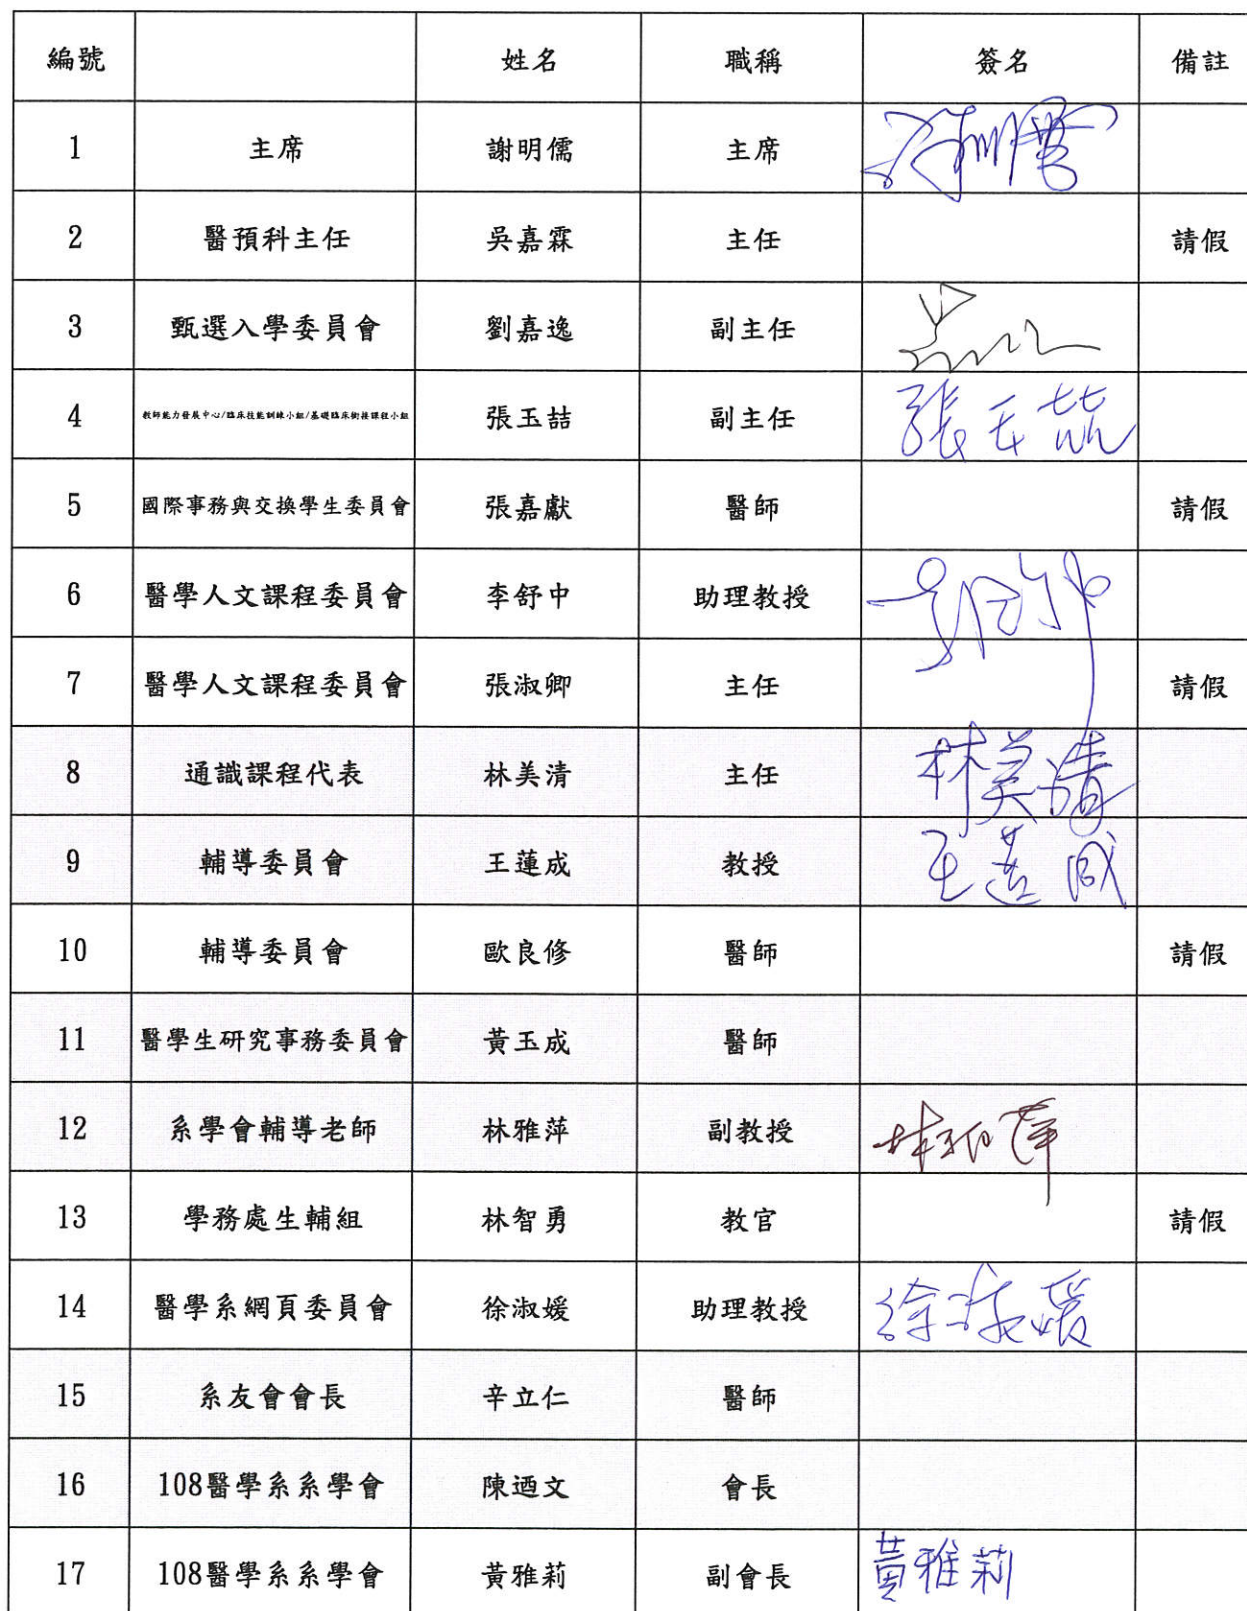 編號 姓名 職稱 簽名 備註
1 主席 謝明儒 主席
2 醫預科主任 吳嘉霖 主任 請假
3 甄選入學委員會 劉嘉逸 副主任
4 教師能力發展中心/臨床技能訓練小組/基礎臨床銜接課程小組 張玉喆 副主任 張玉喆
5 國際事務與交換學生委員會 張嘉獻 醫師 請假
6 醫學人文課程委員會 李舒中 助理教授
7 醫學人文課程委員會 張淑卿 主任 請假
8 通識課程代表 林美清 主任 林美清
9 輔導委員會 王蓮成 教授 王蓮成
10 輔導委員會 歐良修 醫師 請假
11 醫學生研究事務委員會 黃玉成 醫師
12 系學會輔導老師 林雅萍 副教授 林雅萍
13 學務處生輔組 林智勇 教官 請假
14 醫學系網頁委員會 徐淑媛 助理教授 徐淑媛
15 系友會會長 辛立仁 醫師
16 108醫學系系學會 陳迺文 會長
17 108醫學系系學會 黃雅莉 副會長 黃雅莉